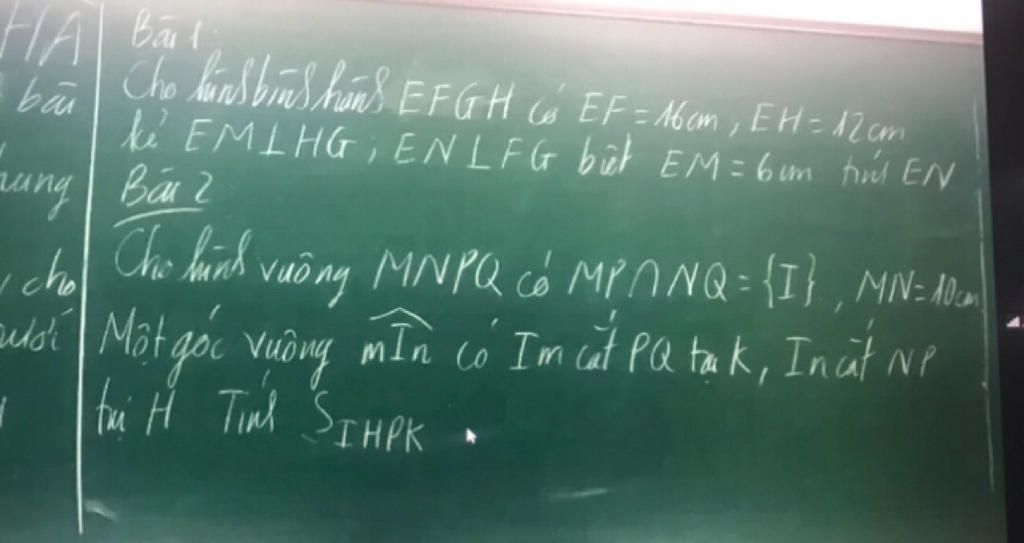 HÀ
bài
hung
cho
Bài 1.
Cho hình bình hành EFGH có EF = 16cm, EH = 12cm
kẻ EM⊥HG; EN⊥FG biết EM = 6cm tính EN
Bài 2
Cho hình vuông MNPQ có MP∩NQ = {I}, MN=10cm
Một góc vuông mIn có Im cắt PQ tại K, In cắt NP
tại H Tính S_IHPK